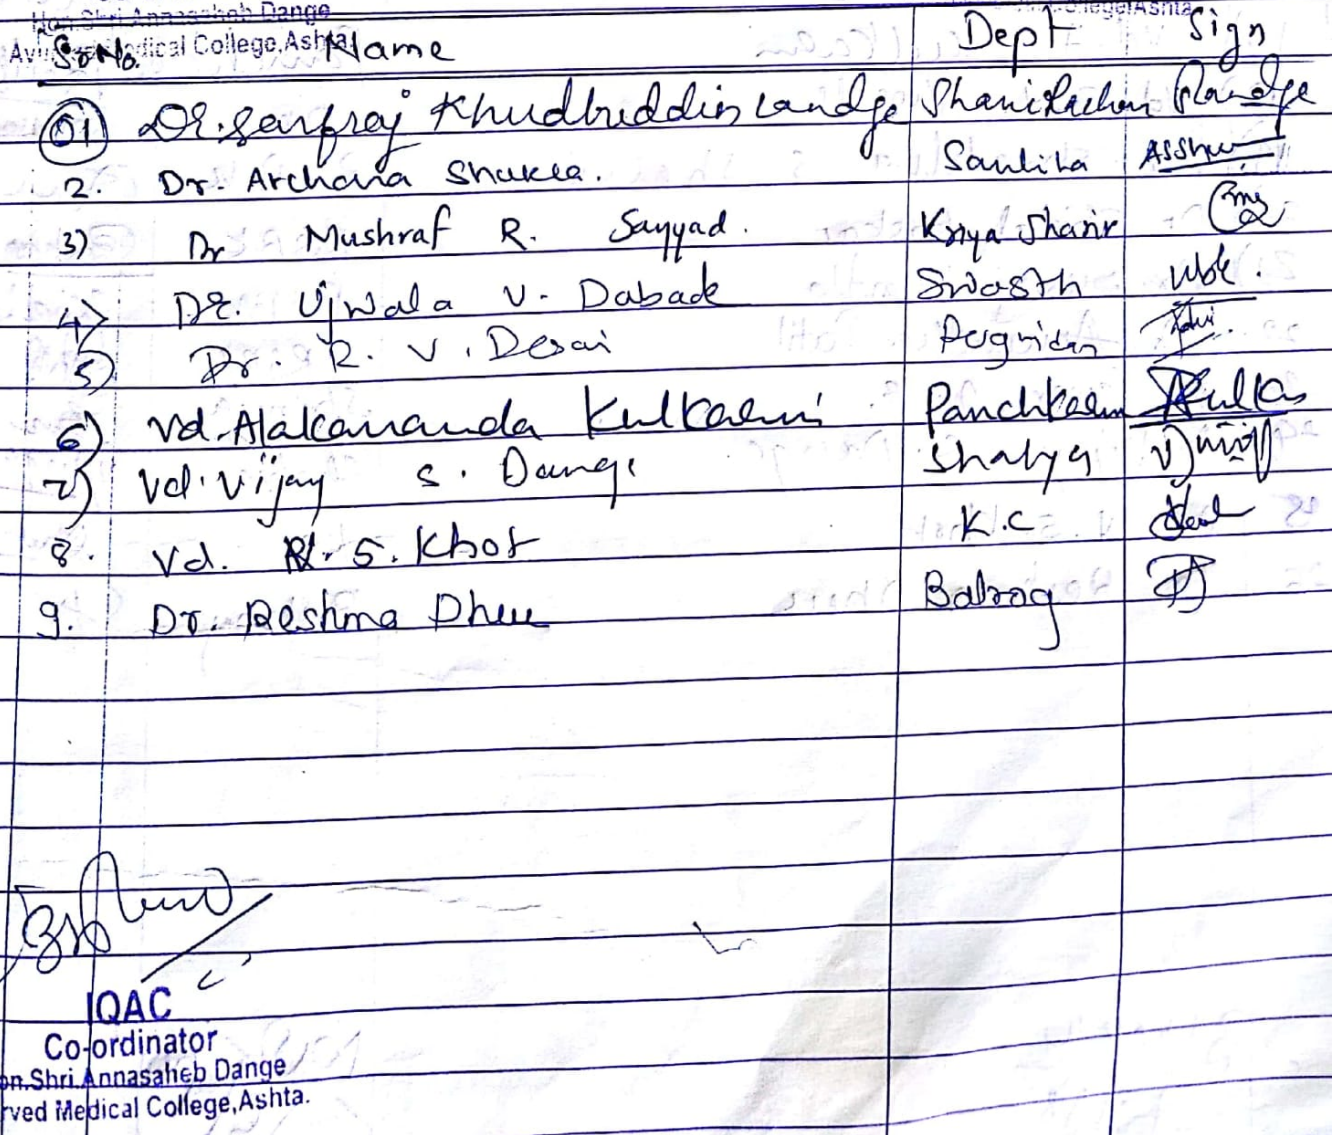 Hon Shri Annasaheb Dange
dical College,Ashta
Sr No. Name Dept Sign
01 Dr. Sarfraj Khudbuddin Landge
2. Dr. Archana Shukla.
3) Dr Mushraf R. Sayyad. Kriya Sharir
4) Dr. Ujwala V. Dabade Swasth
5) Dr. R. V. Desai
6) Vd. Alakananda Kulkarni Panchkarm
7) Vd. Vijay S. Dange Shalya
8. Vd. R. S. Khot K.C
9. Dr. Reshma Balrog
IQAC
Co-ordinator
on.Shri.Annasaheb Dange
rved Medical College,Ashta.